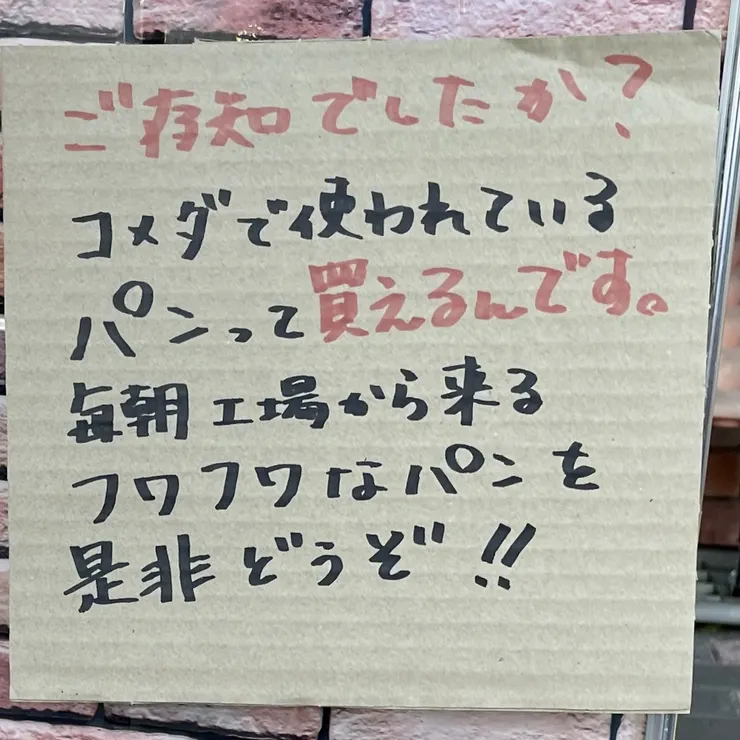 ご存知でしたか?
コメダで使われている
パンって買えるんです。
毎朝工場から来る
フワフワなパンを
是非どうぞ!!